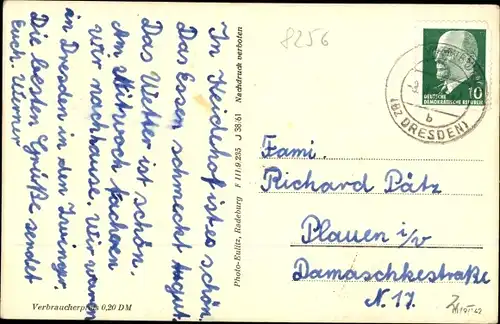 In Heidehof ist es schön.
Das Essen schmeckt gut.
Das Wetter ist schön.
Am Mitwoch fachren
wir nachhause. Wir waren
in Dresden in den Zwinger.
Die besten Grüße sendet
Euch. Werner.
Verbraucherpreis 0,20 DM
Photo-Kulitz, Radeburg F III/9/235 J 38/61 Nachdruck verboten
8256
DEUTSCHE
DEMOKRATISCHE REPUBLIK
10
b
(BZ DRESDEN)
Fami.
Richard Pätz
Plauen i/v
Damaschkestraße
N. 17.